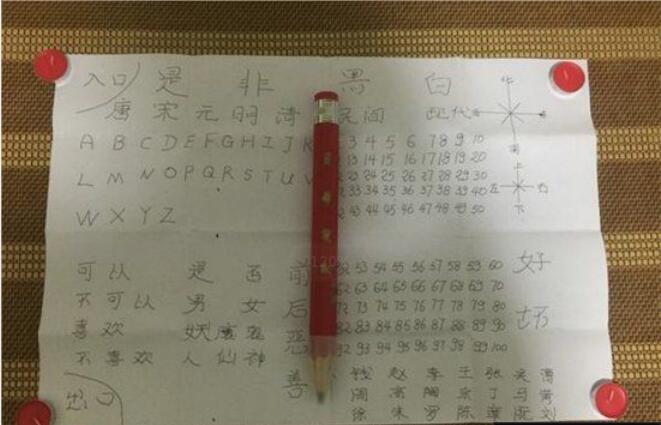 入口 是 非 黑 白 北
唐 宋 元 明 清 民间 现代
南
A B C D E F G H I J K 3 4 5 6 7 8 9 10
13 14 15 16 17 18 19 20
上
L M N O P Q R S T U V 23 24 25 26 27 28 29 30
32 33 34 35 36 37 38 39 40 左 右
W X Y Z 42 43 44 45 46 47 48 49 50 下
可以 是 否 前 52 53 54 55 56 57 58 59 60 好
62 63 64 65 66 67 68 69 70
不可以 男 女 后 72 73 74 75 76 77 78 79 80
喜欢 妖魔鬼 恶 82 83 84 85 86 87 88 89 90 坏
不喜欢 人 仙 神 92 93 94 95 96 97 98 99 100
善 钱 赵 李 王 张 吴
出口 周 高 丁 马
徐 朱 罗 陈 刘